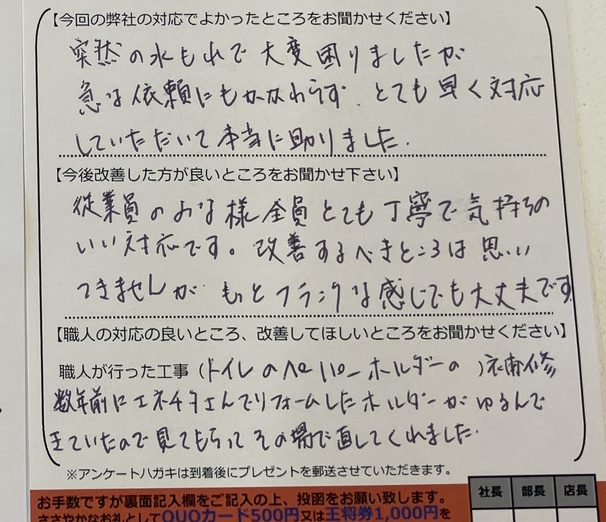 【今回の弊社の対応でよかったところをお聞かせください】
突然の水もれで大変困りましたが
急な依頼にもかかわらず、とても早く対応
していただいて本当に助りました。
【今後改善した方が良いところをお聞かせ下さい】
従業員のみな様全員とても丁寧で気持ちの
いい対応です。改善するべきところは思い
つきませんが もっとフランクな感じでも大丈夫です
【職人の対応の良いところ、改善してほしいところをお聞かせください】
職人が行った工事（トイレのペーパーホルダーの）補修
数年前にエネチタさんでリフォームしたホルダーがゆるんで
きていたので見てもらってその場で直してくれました。
※アンケートハガキは到着後にプレゼントを郵送させていただきます。
お手数ですが裏面記入欄をご記入の上、投函をお願い致します。
社長 部長 店長
ささやかなお礼としてQUOカード500円又は王将券1,000円を